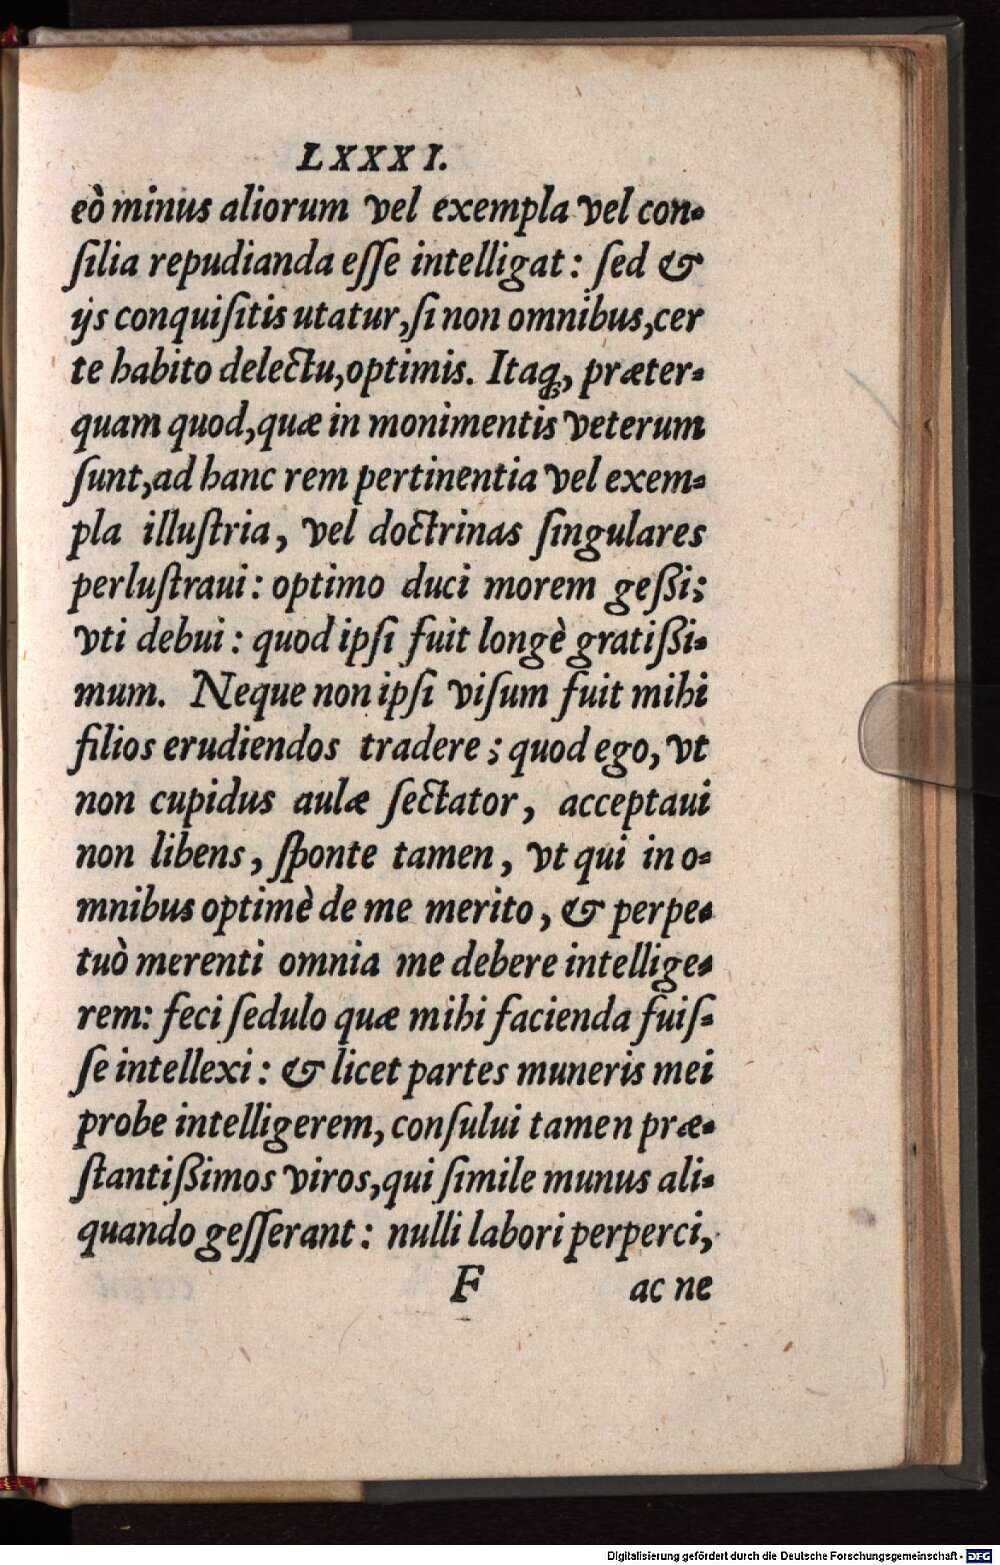 LXXXI.
eò minus aliorum vel exempla vel con-
ſilia repudianda eſſe intelligat: ſed &
ijs conquiſitis utatur, ſi non omnibus, cer
te habito delectu, optimis. Itaq́;, præter-
quam quod, quæ in monimentis veterum
ſunt, ad hanc rem pertinentia vel exem-
pla illuſtria, vel doctrinas ſingulares
perluſtraui: optimo duci morem geßi;
vti debui: quod ipſi fuit longè gratißi-
mum. Neque non ipſi viſum fuit mihi
filios erudiendos tradere; quod ego, vt
non cupidus aulæ ſectator, acceptaui
non libens, ſponte tamen, vt qui in o-
mnibus optimè de me merito, & perpe-
tuò merenti omnia me debere intellige-
rem: feci ſedulo quæ mihi facienda fuiſ-
ſe intellexi: & licet partes muneris mei
probe intelligerem, conſului tamen præ-
ſtantißimos viros, qui ſimile munus ali-
quando geſſerant: nulli labori perperci,
F ac ne
Digitalisierung gefördert durch die Deutsche Forschungsgemeinschaft - DFG